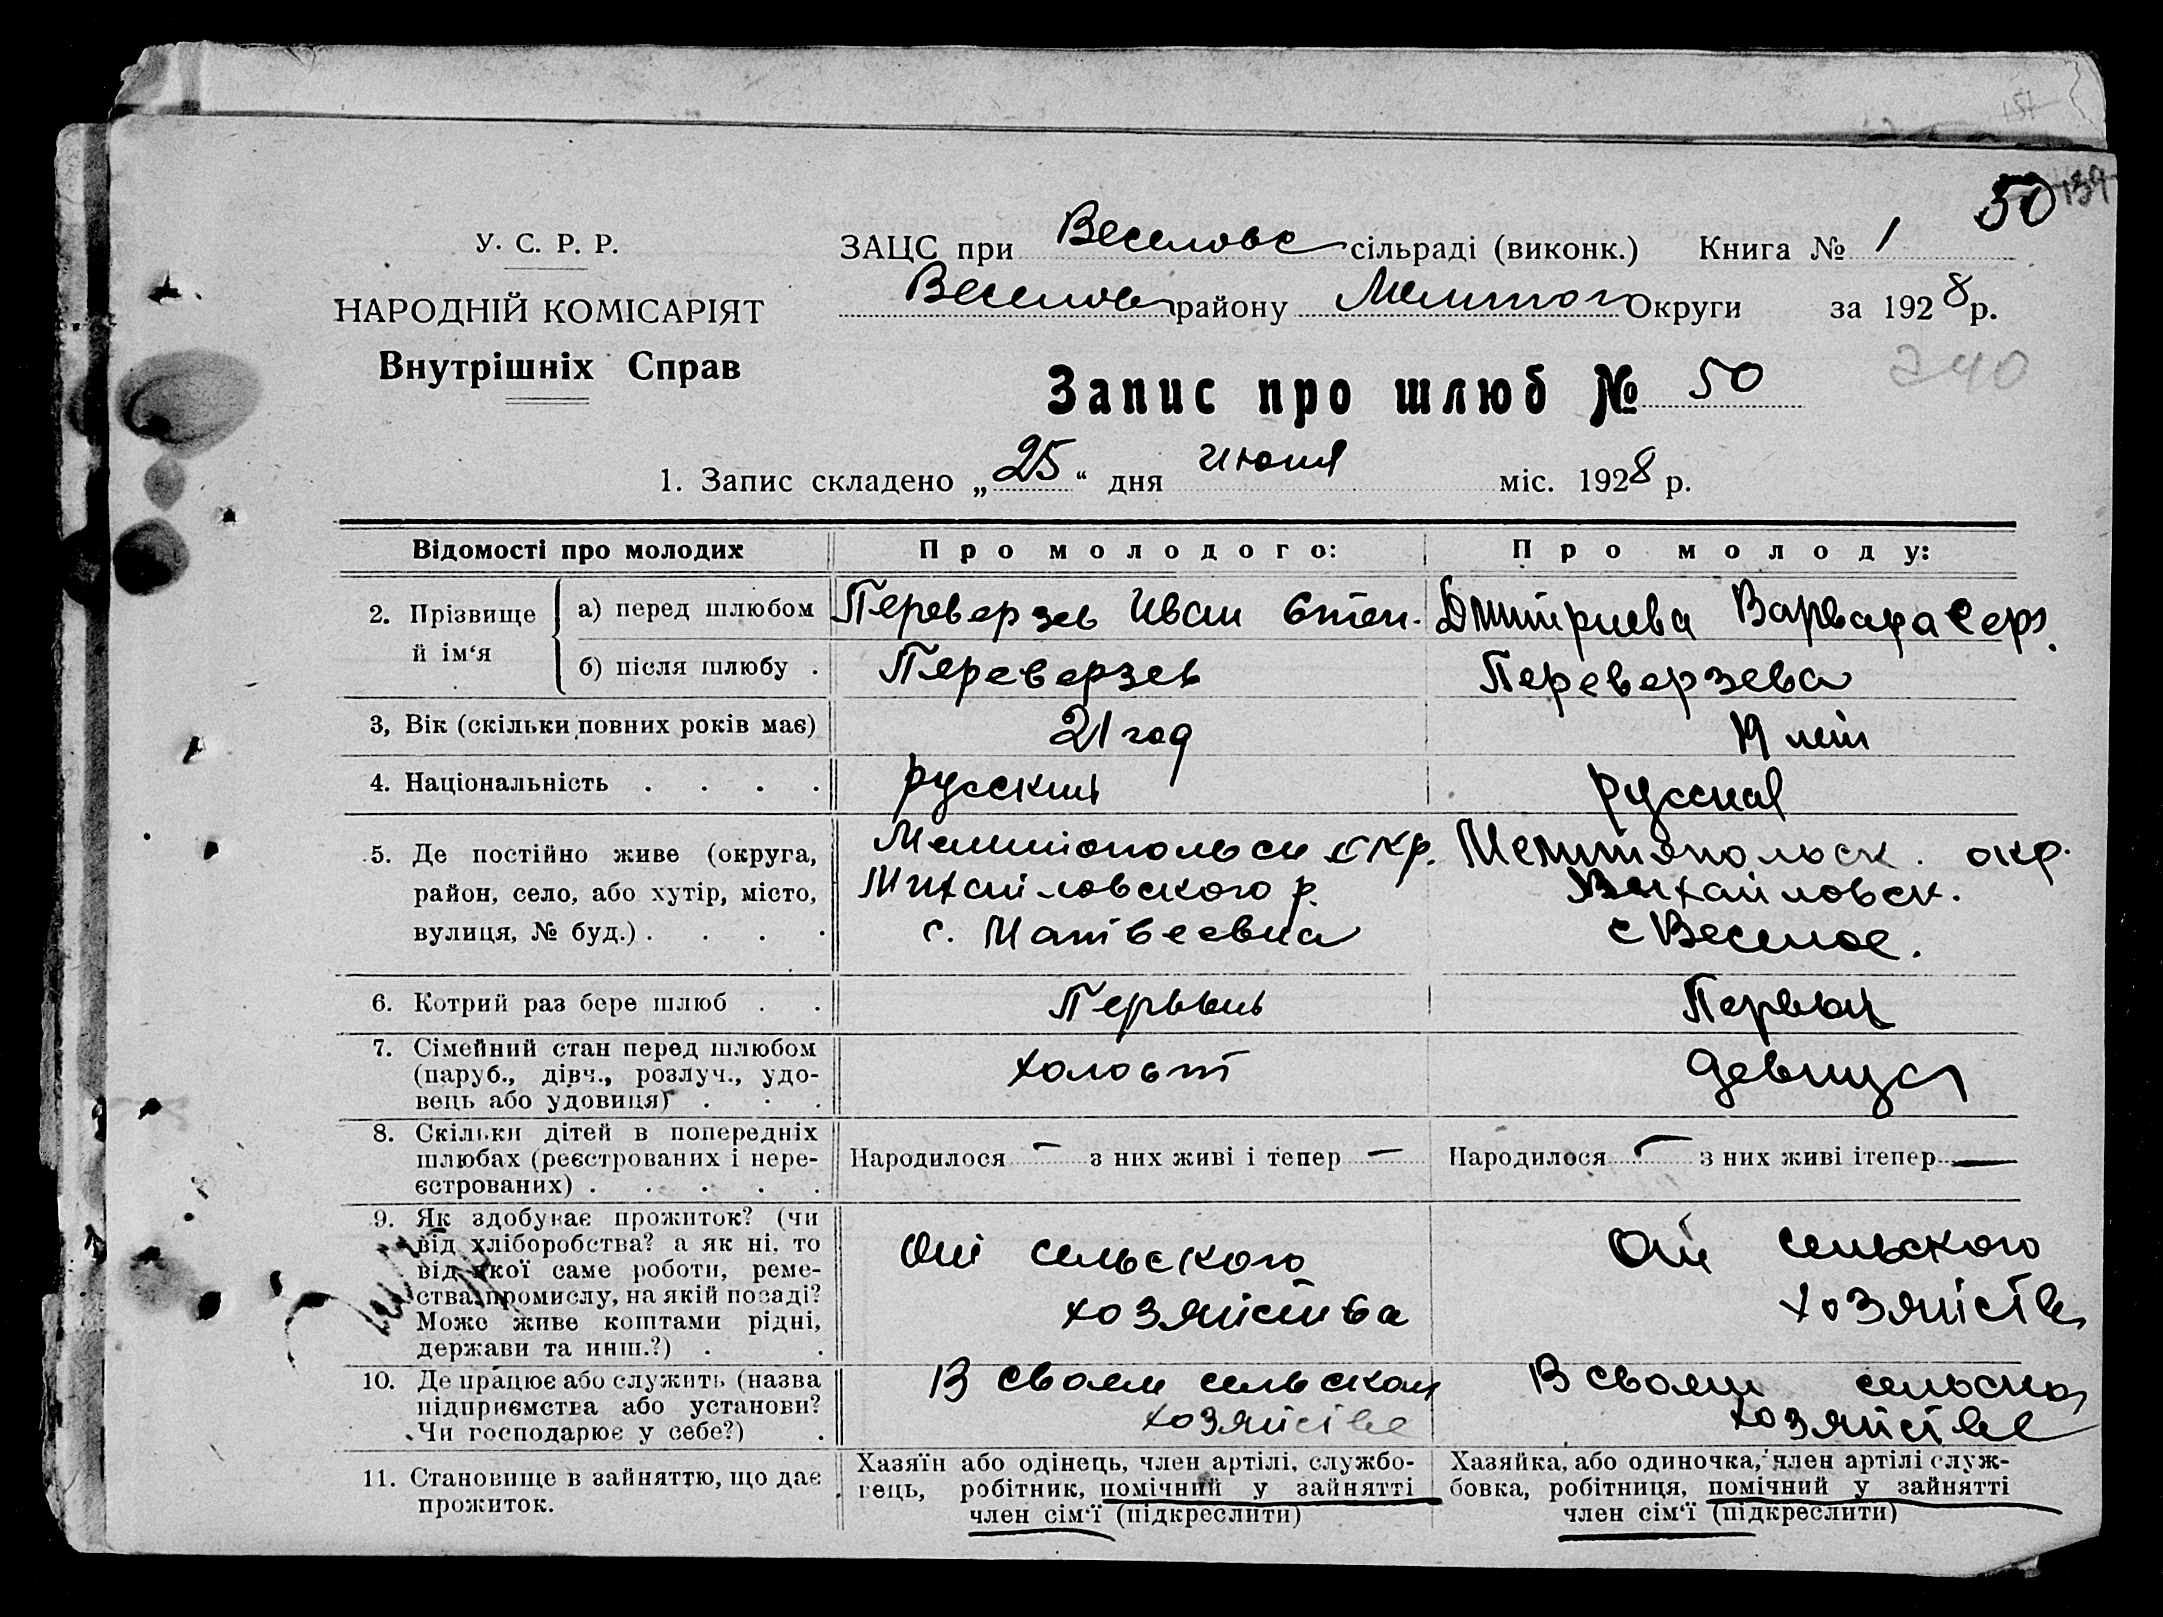 50
У. С. Р. Р.
ЗАЦС при Веселовс сільраді (виконк.) Книга № 1
НАРОДНІЙ КОМІСАРІЯТ
Веселов району Мелитоп Округи за 1928 р.
Внутрішніх Справ
240
Запис про шлюб № 50
1. Запис складено „25“ дня июня міс. 1928 р.
Відомості про молодих Про молодого: Про молоду:
2. Прізвище й ім‘я а) перед шлюбом Переверзев Иван Степ. Дмитриева Варвара Серг.
б) після шлюбу . Переверзев Переверзева
3, Вік (скільки повних років має) 21 год 19 лет
4. Національність . . . . русский русская
5. Де постійно живе (округа, Мелитопольск окр. Мелитопольск. окр.
район, село, або хутір, місто, Михайловского р. Михайловск.
вулиця, № буд.) . . . . с. Матвеевка с Веселое.
6. Котрий раз бере шлюб . . Первый Первый
7. Сімейний стан перед шлюбом
(паруб., дівч., розлуч., удо- холост девица
вець або удовиця) . . .
8. Скільки дітей в попередніх
шлюбах (реєстрованих і нере- Народилося — з них живі і тепер — Народилося — з них живі ітепер —
єстрованих) . . . . .
9. Як здобуває прожиток? (чи
від хліборобства? а як ні, то От сельского От сельского
від якої саме роботи, реме-
ства, промислу, на якій посаді? хозяйства хозяйств
Може живе коштами рідні,
держави та инш.?) . .
10. Де працює або служить (назва В своем сельском В своем сельско
підприємства або установи? хозяйстве хозяйстве
Чи господарює у себе?) .
11. Становище в зайняттю, що дає прожиток. Хазяїн або одінець, член артілі, службо- Хазяйка, або одиночка, член артілі служ-
вець, робітник, помічний у зайнятті бовка, робітниця, помічний у зайнятті
член сім‘ї (підкреслити) член сім‘ї (підкреслити)